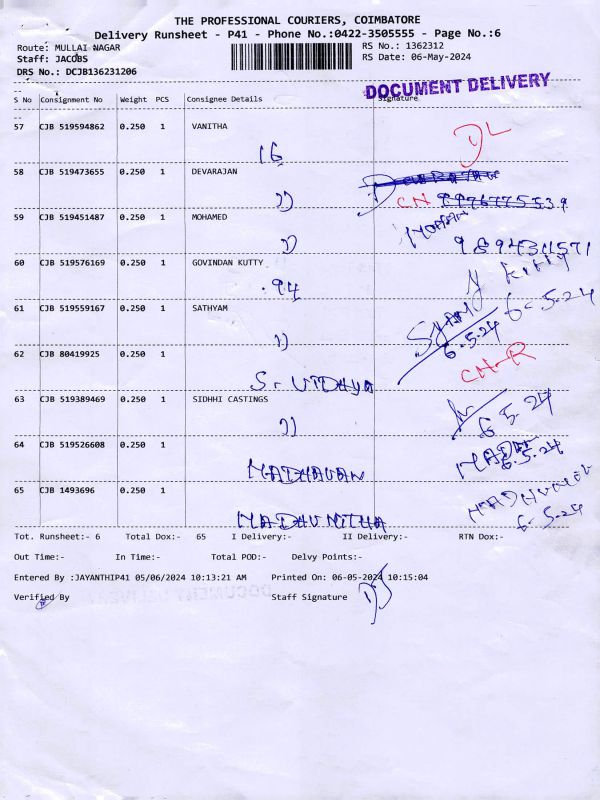 THE PROFESSIONAL COURIERS, COIMBATORE
Delivery Runsheet - P41 - Phone No.:0422-3505555 - Page No.:6
Route: MULLAI NAGAR
RS No.: 1362312
Staff: JACOBS
RS Date: 06-May-2024
DRS No.: DCJB136231206
DOCUMENT DELIVERY
S No Consignment No Weight PCS Consignee Details Signature
57 CJB 519594862 0.250 1 VANITHA
16 DL
58 CJB 519473655 0.250 1 DEVARAJAN
CN 9976775539
59 CJB 519451487 0.250 1 MOHAMED
9894311571
60 CJB 519576169 0.250 1 GOVINDAN KUTTY
.94 Kutty
6-5-24
61 CJB 519559167 0.250 1 SATHYAM
SYAM
6.5.24
62 CJB 80419925 0.250 1
Sr VIDHYA CN-R
63 CJB 519389469 0.250 1 SIDHHI CASTINGS
6 5 24
64 CJB 519526608 0.250 1
MADHAVAN 6.5.24
65 CJB 1493696 0.250 1
MADHUMITHA 6-5-24
Tot. Runsheet:- 6 Total Dox:- 65 I Delivery:- II Delivery:- RTN Dox:-
Out Time:- In Time:- Total POD:- Delvy Points:-
Entered By :JAYANTHIP41 05/06/2024 10:13:21 AM Printed On: 06-05-2024 10:15:04
Verified By Staff Signature